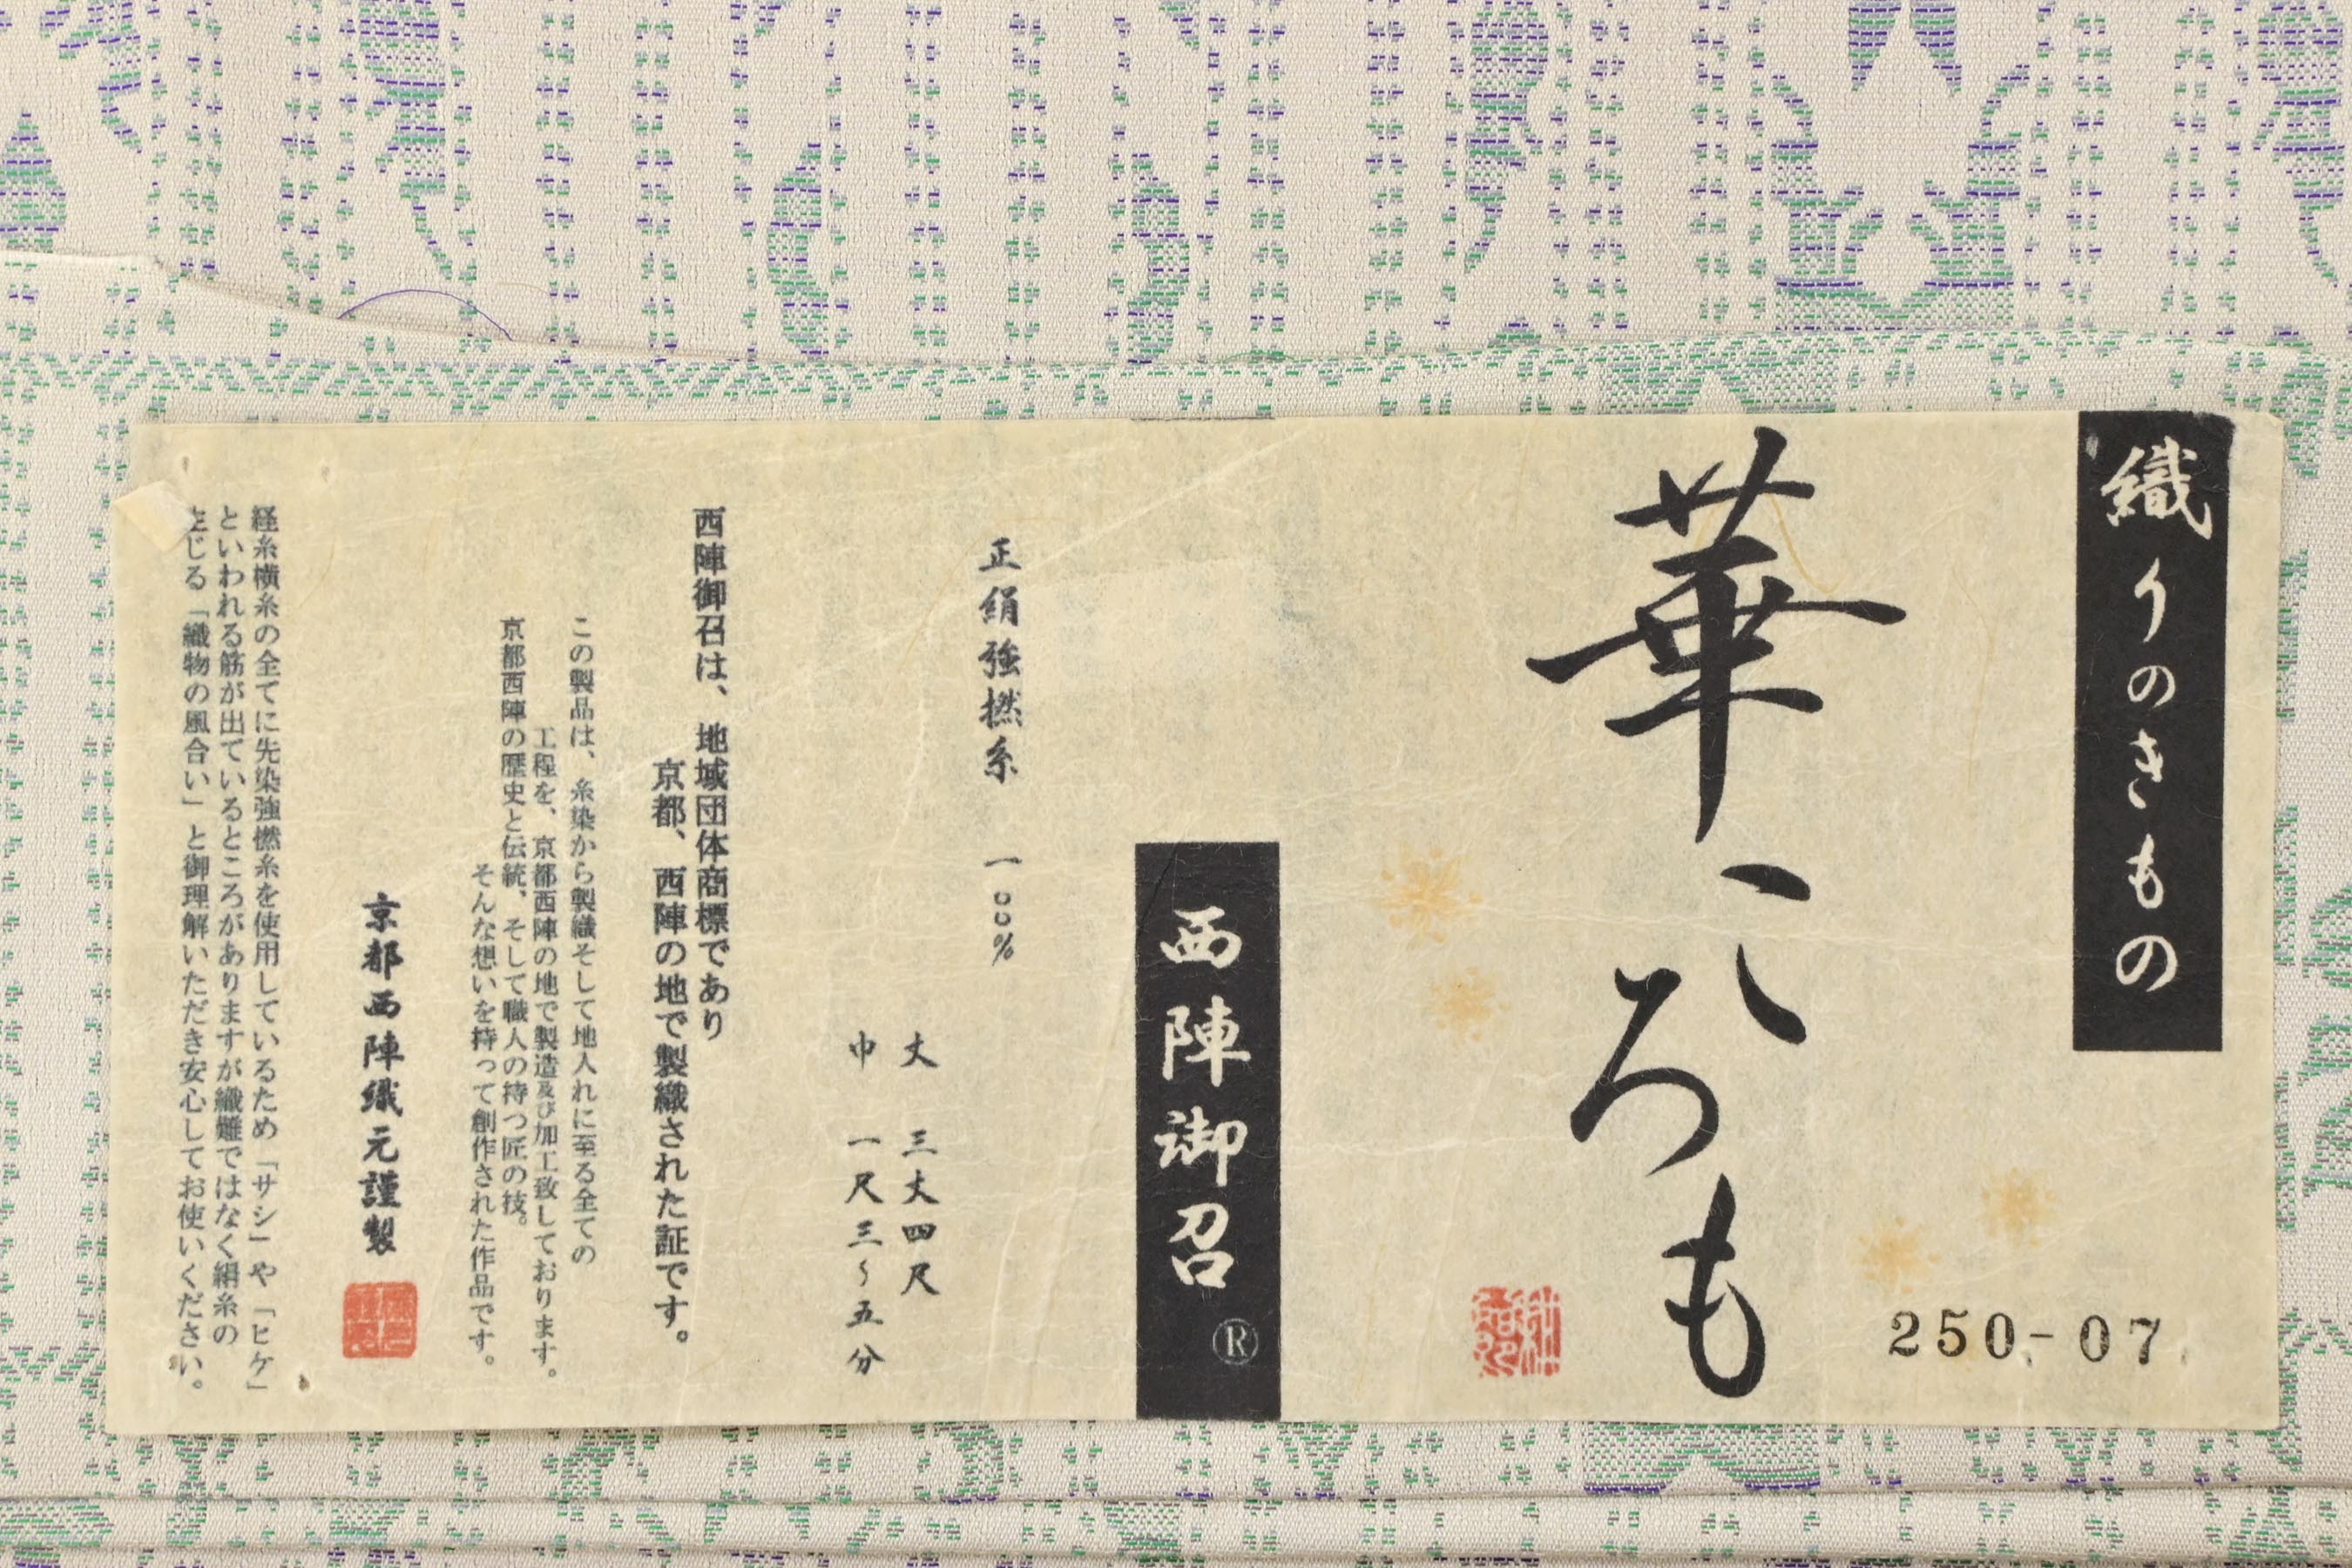 織りのきもの
華ころも
250-07
西陣御召®
正絹強撚糸 一〇〇%
丈 三丈四尺
巾 一尺三〜五分
西陣御召は、地域団体商標であり
京都、西陣の地で製織された証です。
この製品は、糸染から製織そして地入れに至る全ての
工程を、京都西陣の地で製造及び加工致しております。
京都西陣の歴史と伝統、そして職人の持つ匠の技。
そんな想いを持って創作された作品です。
京都西陣織元謹製
経糸横糸の全てに先染強撚糸を使用しているため「サシ」や「ヒケ」
といわれる筋が出ているところがありますが織難ではなく絹糸の
生じる「織物の風合い」と御理解いただき安心してお使いください。